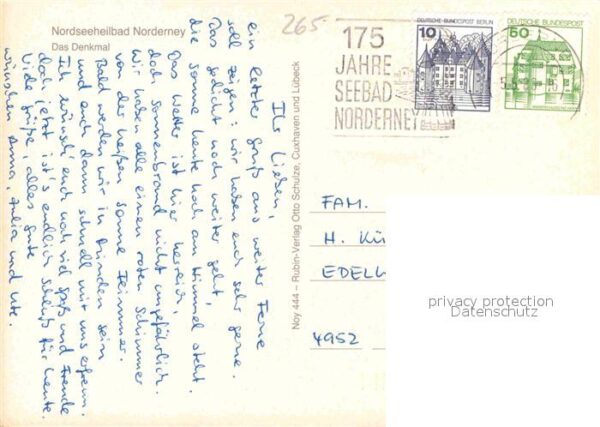 Nordseeheilbad Norderney
Das Denkmal
265.-
175
JAHRE
SEEBAD
NORDERNEY
10
DEUTSCHE BUNDESPOST BERLIN
50
DEUTSCHE BUNDESPOST
Ihr Lieben,
ein letzter Gruß aus weiter Ferne
soll zeigen: wir haben euch sehr gerne.
Das Gedicht noch weiter geht,
die Sonne heute hoch am Himmel steht.
Das Wetter ist hier herrlich,
doch Sonnenbrand nicht ungefährlich.
Wir haben alle einen roten Schimmer
von der heißen Sonne Flimmer.
Bald werden wir in Minden sein
und euch dann schnell mit uns erfreun.
Ich wünsch' euch noch viel Spaß und Freude
doch jetzt ist's endlich Schluß für heute.
Viele Grüße, alles Gute
wünschen Anna, Julia und Ute.
Noy 444 – Rubin-Verlag Otto Schulze, Cuxhaven und Lübeck
FAM.
H. KÜ
EDELH
4952
privacy protection
Datenschutz